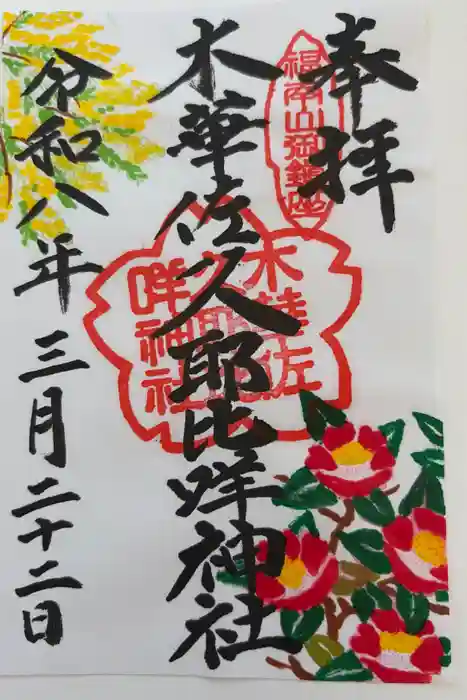 奉拝
福南山御鎮座
木華佐久耶比咩神社
木華佐
久耶比
咩神社
分和八年三月二十二日